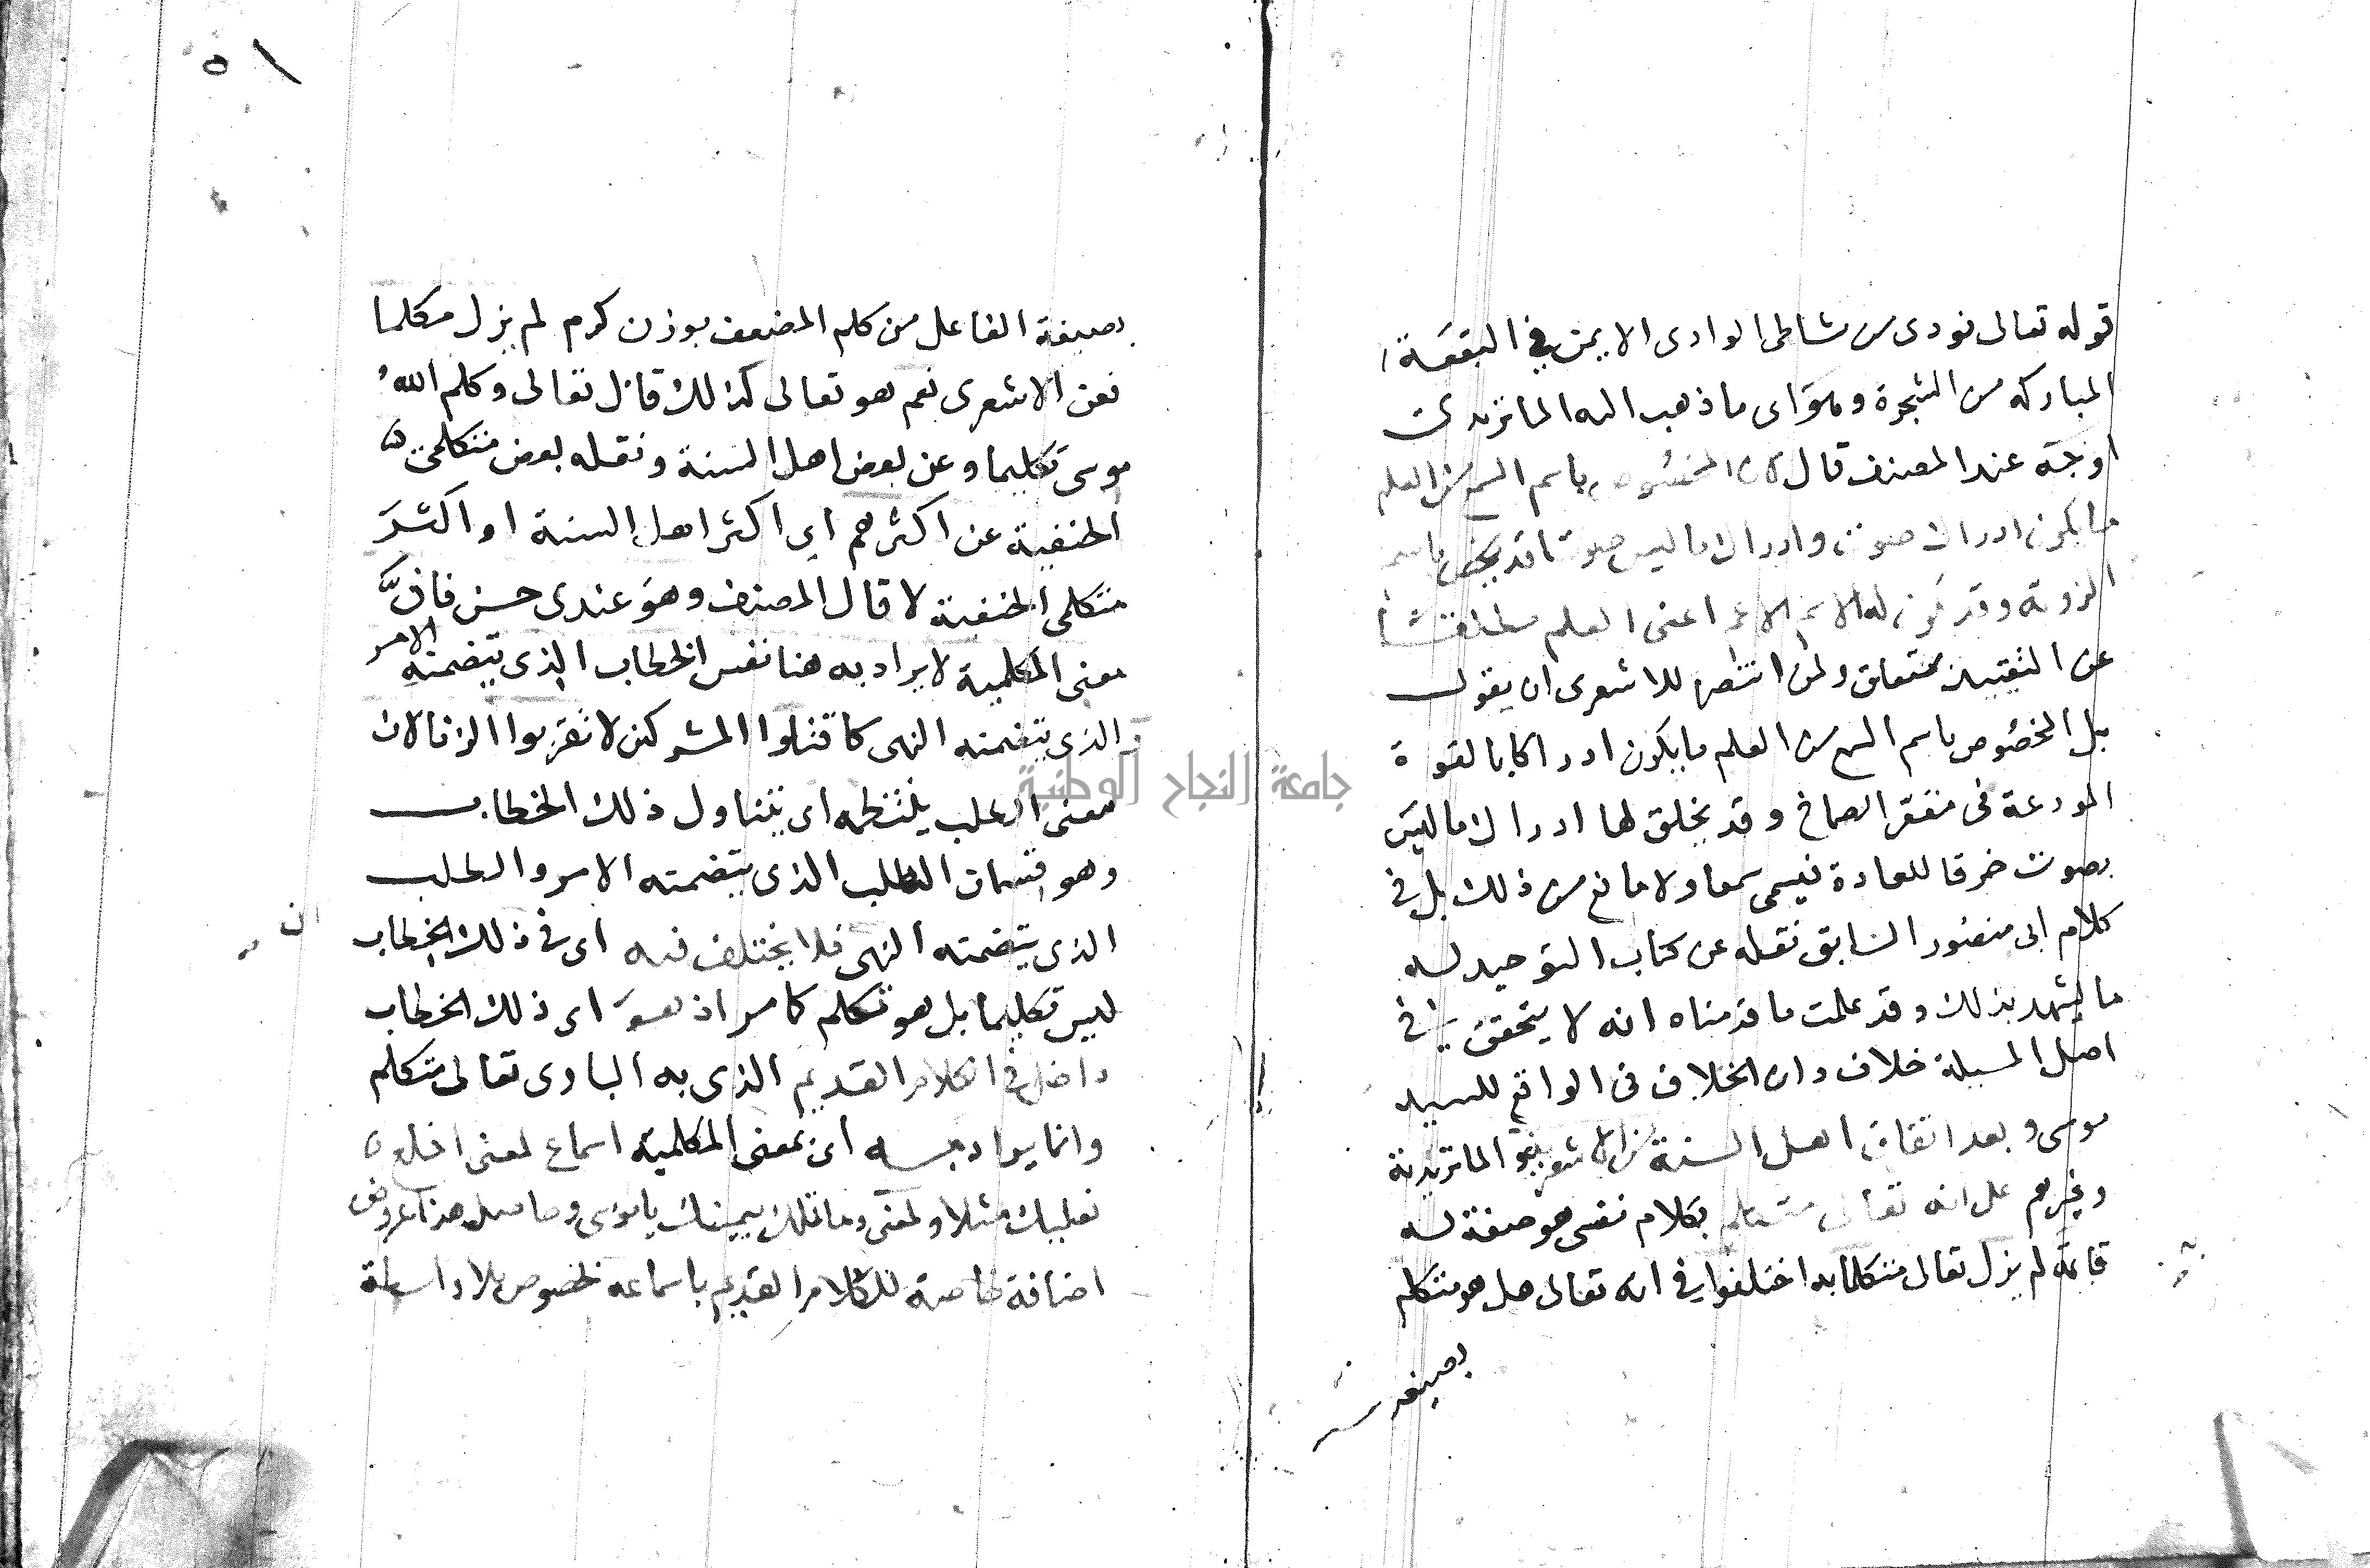 قوله تعالى نودى من شاطى الوادى الايمن في البقعة
المباركه من الشجرة وهو اى ما ذهب اليه الماتريدى
اوجه عند المصنف قال لان المخصوص باسم السمع من العلم
ما يكون ادراك صوت وادراك ما ليس صوتا قد يخص باسم
الروية وقد يكون له الاسم الاعم اعنى العلم مطلقا
عن التقييد بمتعلق ولمن انتصر للاشعرى ان يقول
بل المخصوص باسم السمع من العلم ما يكون ادراكا بالقوة
المودعة فى مقعر الصماخ وقد يخلق لها ادراك ما ليس
بصوت خرقا للعادة فيسمى سمعا ولا مانع من ذلك بل في
كلام ابى منصور السابق نقله عن كتاب التوحيد له
ما يشهد بذلك وقد علمت ما قدمناه انه لا يتحقق في
اصل المسيلة خلاف وان الخلاف فى الواقع للسيد
موسى وبعد اتفاق اهل السنة من الاشعرية والماتريدية
وغيرهم على انه تعالى متكلم بكلام نفسى هو صفة له
قايمة لم يزل تعالى متكلما به اختلفوا في انه تعالى هل هو متكلم
بصيغه
٥١
بصيغة الفاعل من كلم المضعف بوزن كرم لم يزل مكلما
فعن الاشعرى نعم هو تعالى كذلك قال تعالى وكلم الله
موسى تكليما وعن بعض اهل السنة ونقله بعض متكلمى
الحنفية عن اكثرهم اى اكثر اهل السنة او اكثر
متكلمى الحنفية لا قال المصنف وهو عندى حسن فان
معنى المكلمية لا يراد به هنا نفس الخطاب الذى يتضمنه الامر
والذى يتضمنه النهى كاقتلوا المشركين لا تقربوا الزنا لان
معنى الطلب يلتظمه اى يتناول ذلك الخطاب
وهو قسمان الطلب الذى يتضمنه الامر والطلب
الذى يتضمنه النهى فلا يختلف فيه اى في ذلك الخطاب
ليس تكليما بل هو تكلم كامر اذ هو اى ذلك الخطاب
داخل في الكلام القديم الذى به البارى تعالى متكلم
وانما يراد به اى بمعنى المكلمية اسماع لمعنى اخلع
نعليك مثلا ولمعنى وما تلك بيمينك ياموسى وحاصل هذا عروض
اضافة خاصة للكلام القديم باسماعه لخصوص بلا واسطة
جامعة النجاح الوطنية